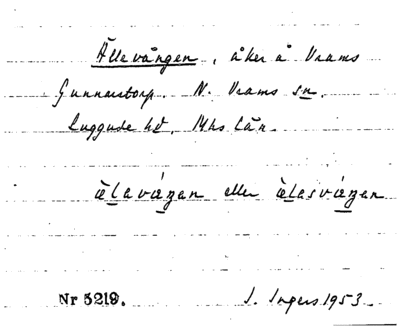 Ällevången, åker å Vrams
Gunnarstorp. N. Vrams sn.
Luggude hd, Mhs län.
älevágen eller älesvágen
Nr 5219. I. Ingers 1953.